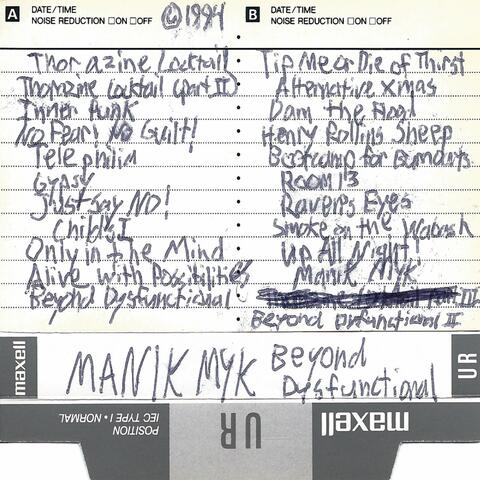 A DATE/TIME
NOISE REDUCTION □ON □OFF
©1994
B DATE/TIME
NOISE REDUCTION □ON □OFF
Thorazine Locktail
Thorazine Locktail (part II)
Inner Punk
No Fear! No Guilt!
Telephilia
Gypsy
Just Say NO!
Child I
Only in the Mind
Alive with Possibilities
Beyond Dysfunctional
Tip Me or Die of Thirst
Alternative Xmas
Dam the Flood
Henry Rollins Sheep
Bootcamp for
Room 13
Ravers Eyes
Smoke on the Wabash
Up All Night
Manik Myk
III
Beyond Dysfunctional II
maxell
MANIK MYK Beyond
Dysfunctional
UR
POSITION
IEC TYPE I • NORMAL
UR
maxell